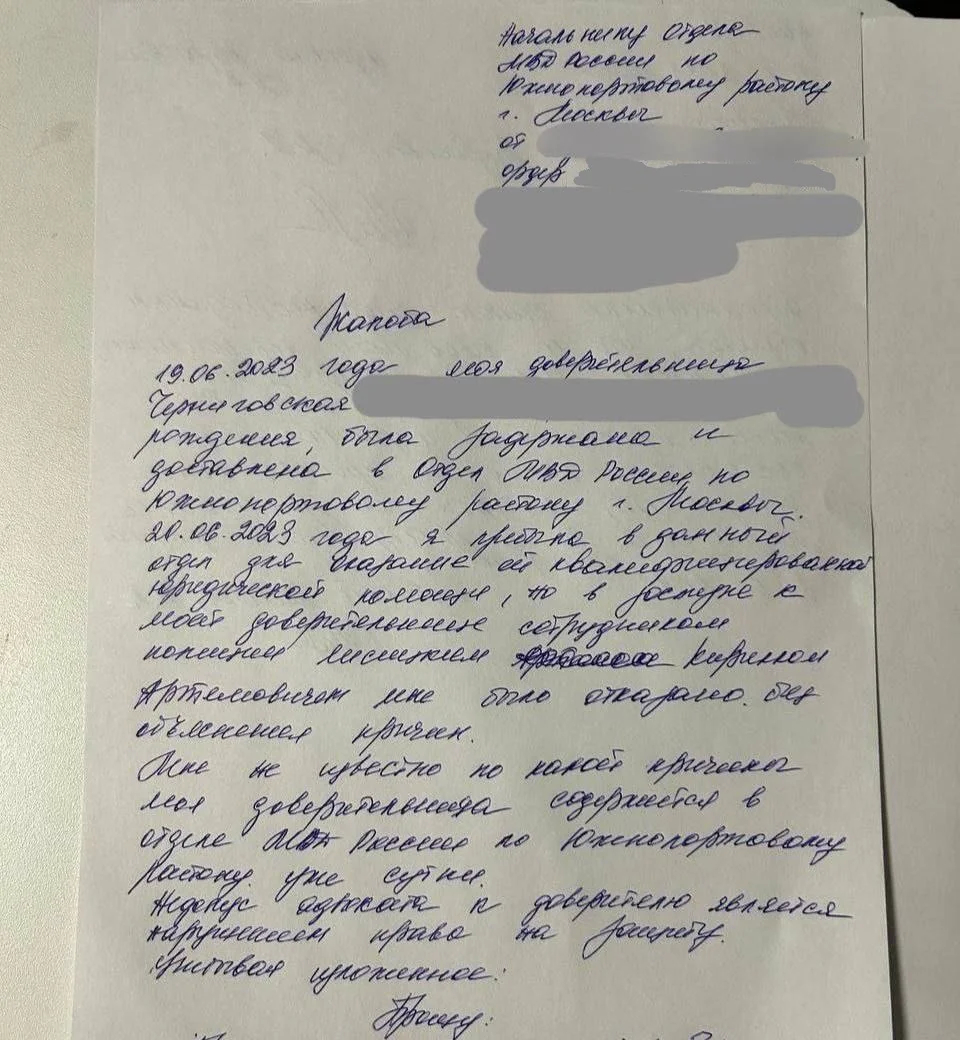 Начальнику Отдела
МВД России по
Южнопортовому району
г. Москвы
от
ордер
Жалоба
19.06.2023 года моя доверительница
Черниговская
рождения, была задержана и
доставлена в Отдел МВД России по
Южнопортовому району г. Москвы.
20.06.2023 года я прибыла в данный
отдел для оказание ей квалифицированной
юридической помощи, но в доступе к
моей доверительнице сотрудником
полиции Лисицким Кириллом
Артемовичем мне было отказано. без
объяснения причин.
Мне не известно по какой причины
моя доверительница содержится в
отделе МВД России по Южнопортовому
району уже сутки.
Недопус адвоката к доверителю является
нарушением права на защиту.
Учитывая изложенное:
Прошу: